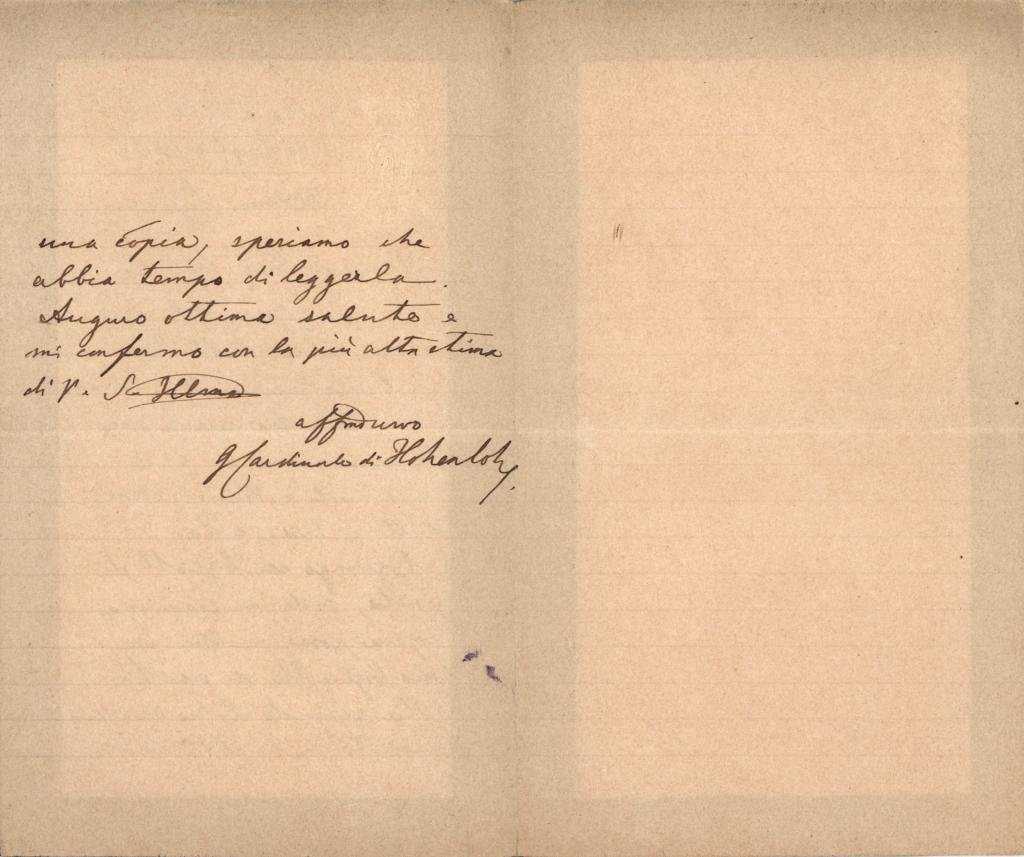 una copia, speriamo che
abbia tempo di leggerla.
Auguro ottima salute e
mi confermo con la più alta stima
di V. S. Illma
affmo servo
G Cardinale di Hohenlohe.